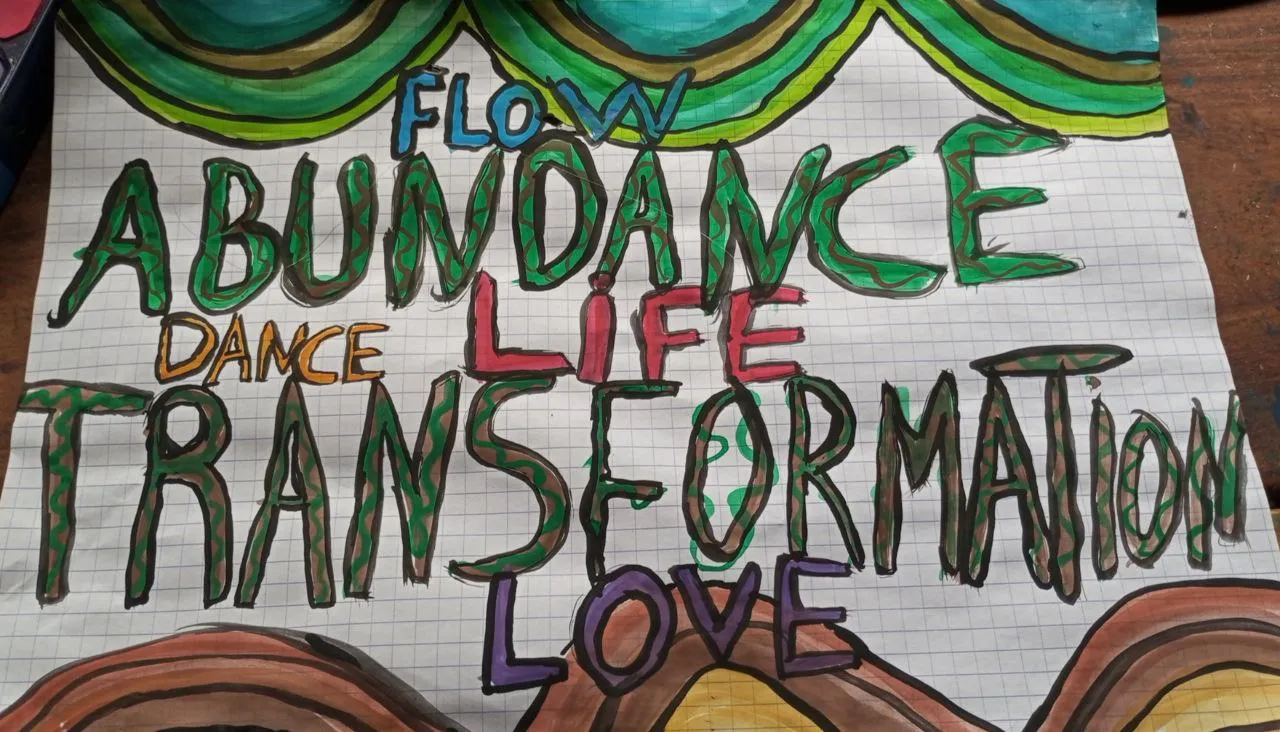 FLOW
ABUNDANCE
LiFE
DANCE
TRANSFORMATiON
LOVE